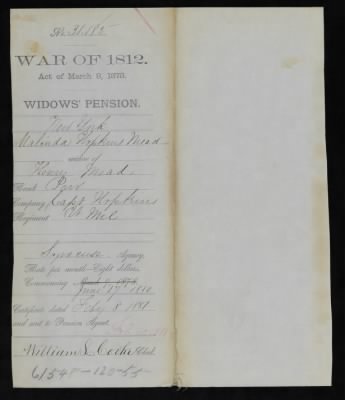 No. 31,182
WAR OF 1812.
Act of March 9, 1878.
WIDOWS' PENSION.
New York
Malinda Hopkins Mead
widow of
Henry Mead,
Rank, Priv
Company, Capt Hopkins
Regiment, Ct Mil
Syracuse Agency.
Rate per month, Eight dollars.
Commencing March 9, 1878.
June 17th 1880
Certificate dated Feby 8 1881
and sent to Pension Agent
William L. Cooke Clerk.
61548-120-55-